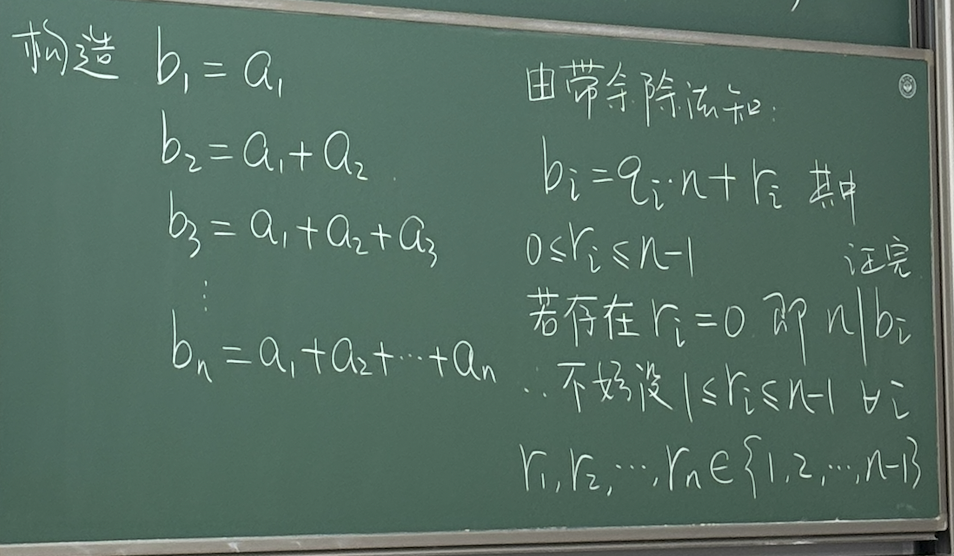 构造 b₁ = a₁
b₂ = a₁ + a₂
b₃ = a₁ + a₂ + a₃
⋮
bₙ = a₁ + a₂ + ⋯ + aₙ
由带余除法知:
bᵢ = qᵢ·n + rᵢ 其中
0 ≤ rᵢ ≤ n-1 证完
若存在 rᵢ = 0 即 n | bᵢ
∴ 不妨设 1 ≤ rᵢ ≤ n-1 ∀i
r₁, r₂, ⋯, rₙ ∈ {1, 2, ⋯, n-1}